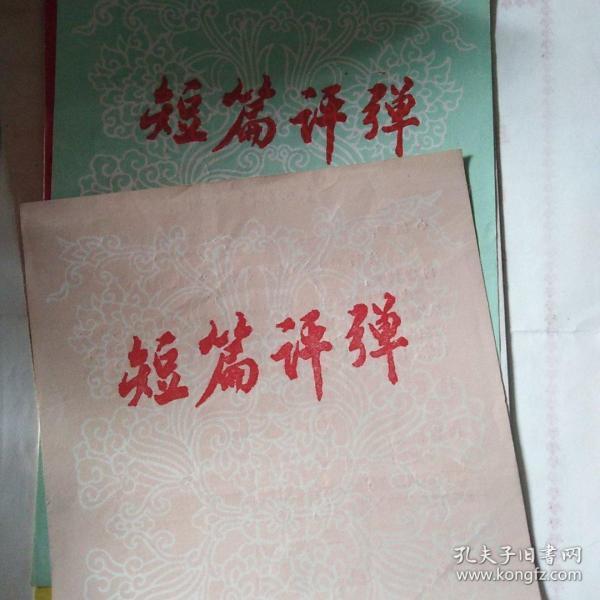 短篇评弹
短篇评弹
孔夫子旧书网
www.kongfz.com